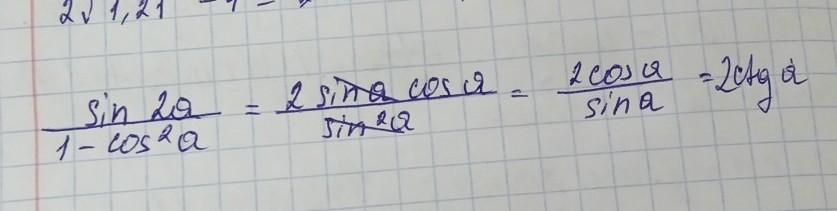 2√1,21 - 1 =
sin 2a / 1 - cos²a = 2 sin a cos a / sin²a = 2 cos a / sin a = 2ctg a